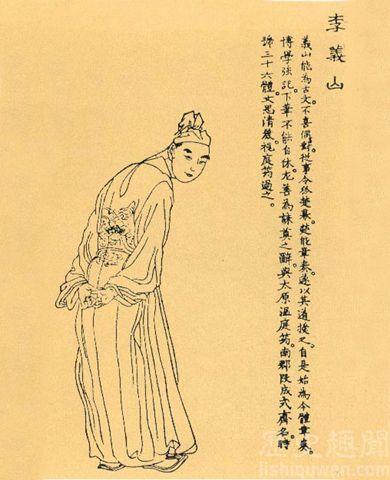 李義山
義山能為古文。不喜偶對。從事令狐楚幕。楚能章奏。遂以其道授之。自是始為今體章奏。
博學強記。下筆不能自休。尤善為誄奠之辭。與太原溫庭筠。南郡段成式齊名。時
號三十六體。文思清 視庭筠過之。
歷史趣聞
lishiquwen.com